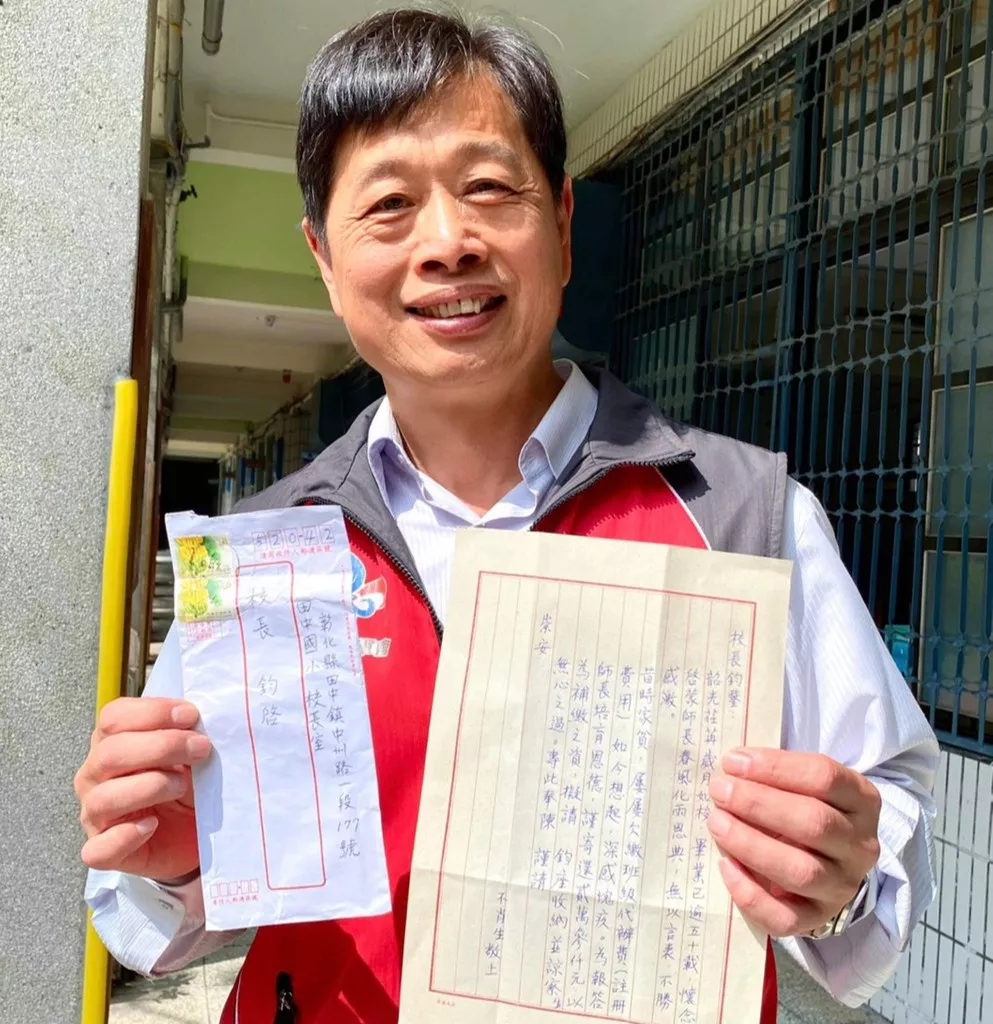 520-42
彰化縣田中鎮中州路一段177號
田中國小校長室
校長 鈞啓
校長鈞鑒：
韶光荏苒歲月如梭，畢業已逾五十載，懷念
啓蒙師長春風化雨恩典，無以言表，不勝
感激。
昔時家貧，屢屢欠繳班級代辦費(註冊
費用)，如今想起，深感愧疚。為報答
師長培育恩德，謹寄還貳萬參仟元，以
為補繳之資，擬請 鈞座收納並諒察生
無心之過。專此奉陳 謹請
崇安
不肖生敬上